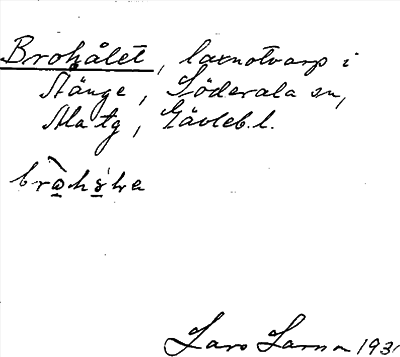 Brohålet, laxnotvarp i
Stånge, Söderala sn,
Ala tg, Gävleb. l.
Lars Larson 193